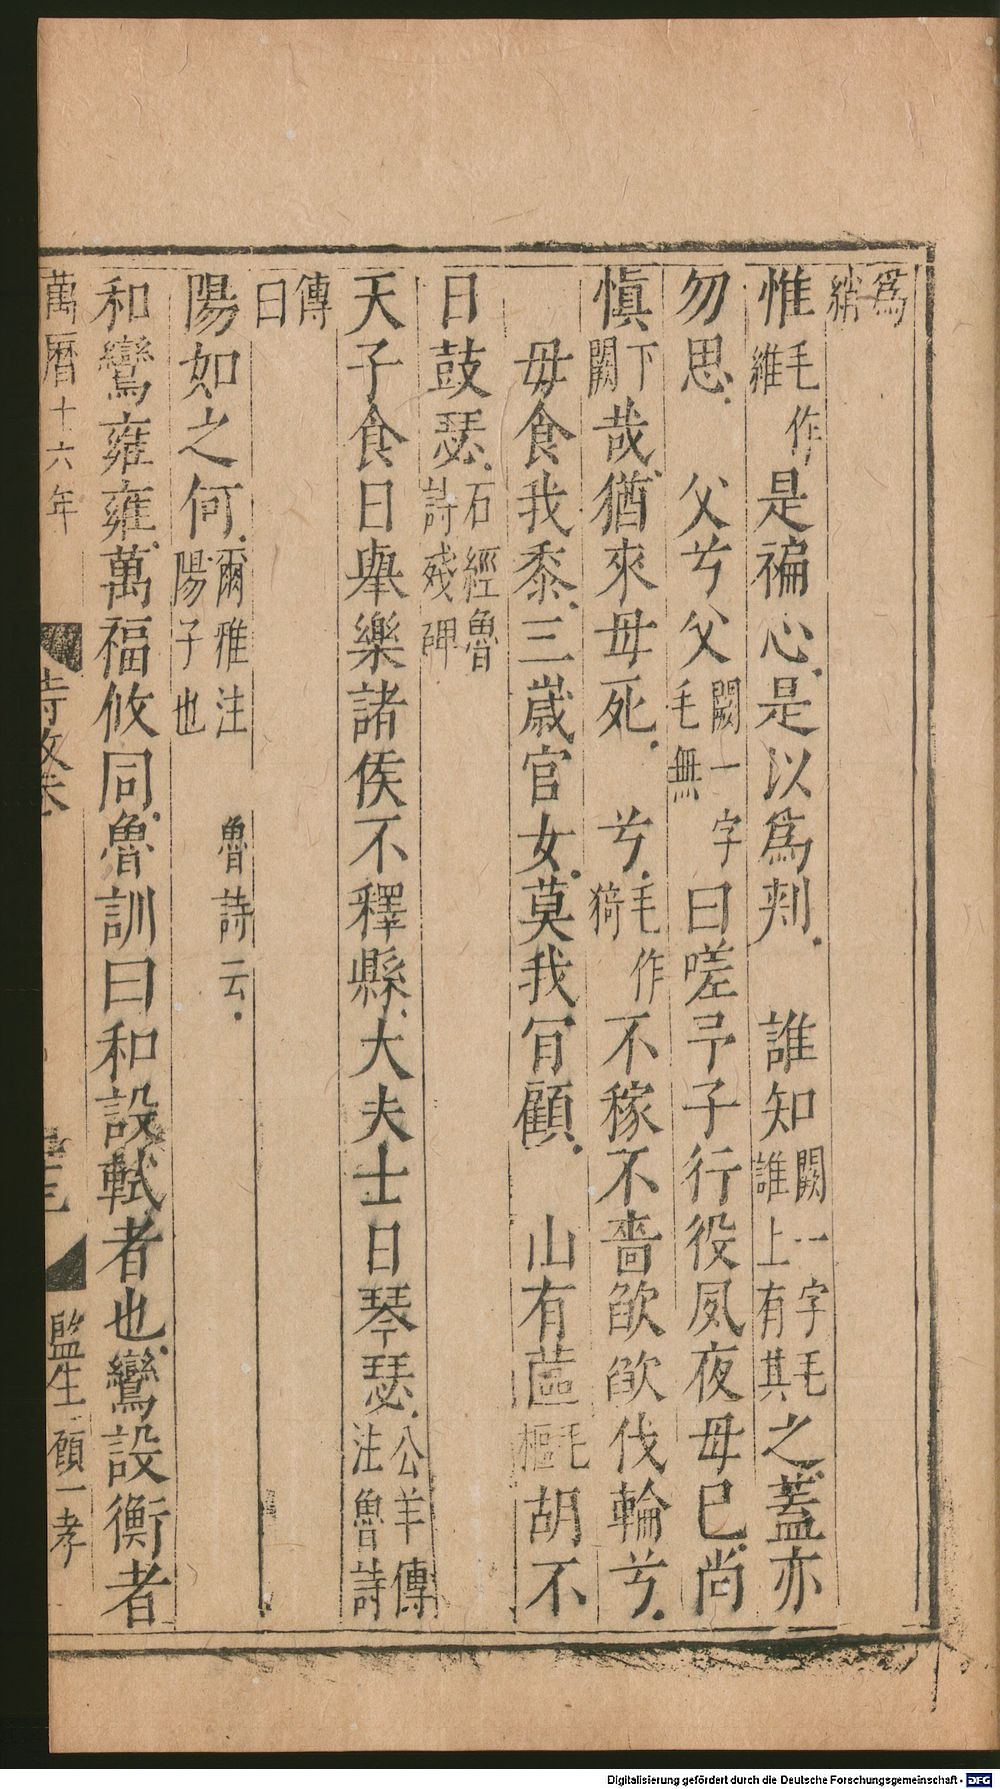 爲
惟毛作維是褊心是以爲刺　誰知闕一字毛誰上有其之蓋亦
勿思　父兮父闕一字毛無曰嗟予子行役夙夜毋已尚
愼下闕哉猶來毋死　兮毛作猗不稼不嗇欿欿伐輪兮
毋食我黍三歲官女莫我肎顧　山有蓲毛樞胡不
日鼓瑟石經魯詩殘碑
天子食日舉樂諸侯不釋縣大夫士日琴瑟公羊傳注魯詩
傳曰
陽如之何爾雅注　魯詩云陽子也
和鸞雍雍萬福攸同魯訓曰和設軾者也鸞設衡者
萬曆十六年　詩攷卷　監生顧一孝
Digitalisierung gefördert durch die Deutsche Forschungsgemeinschaft - DFG